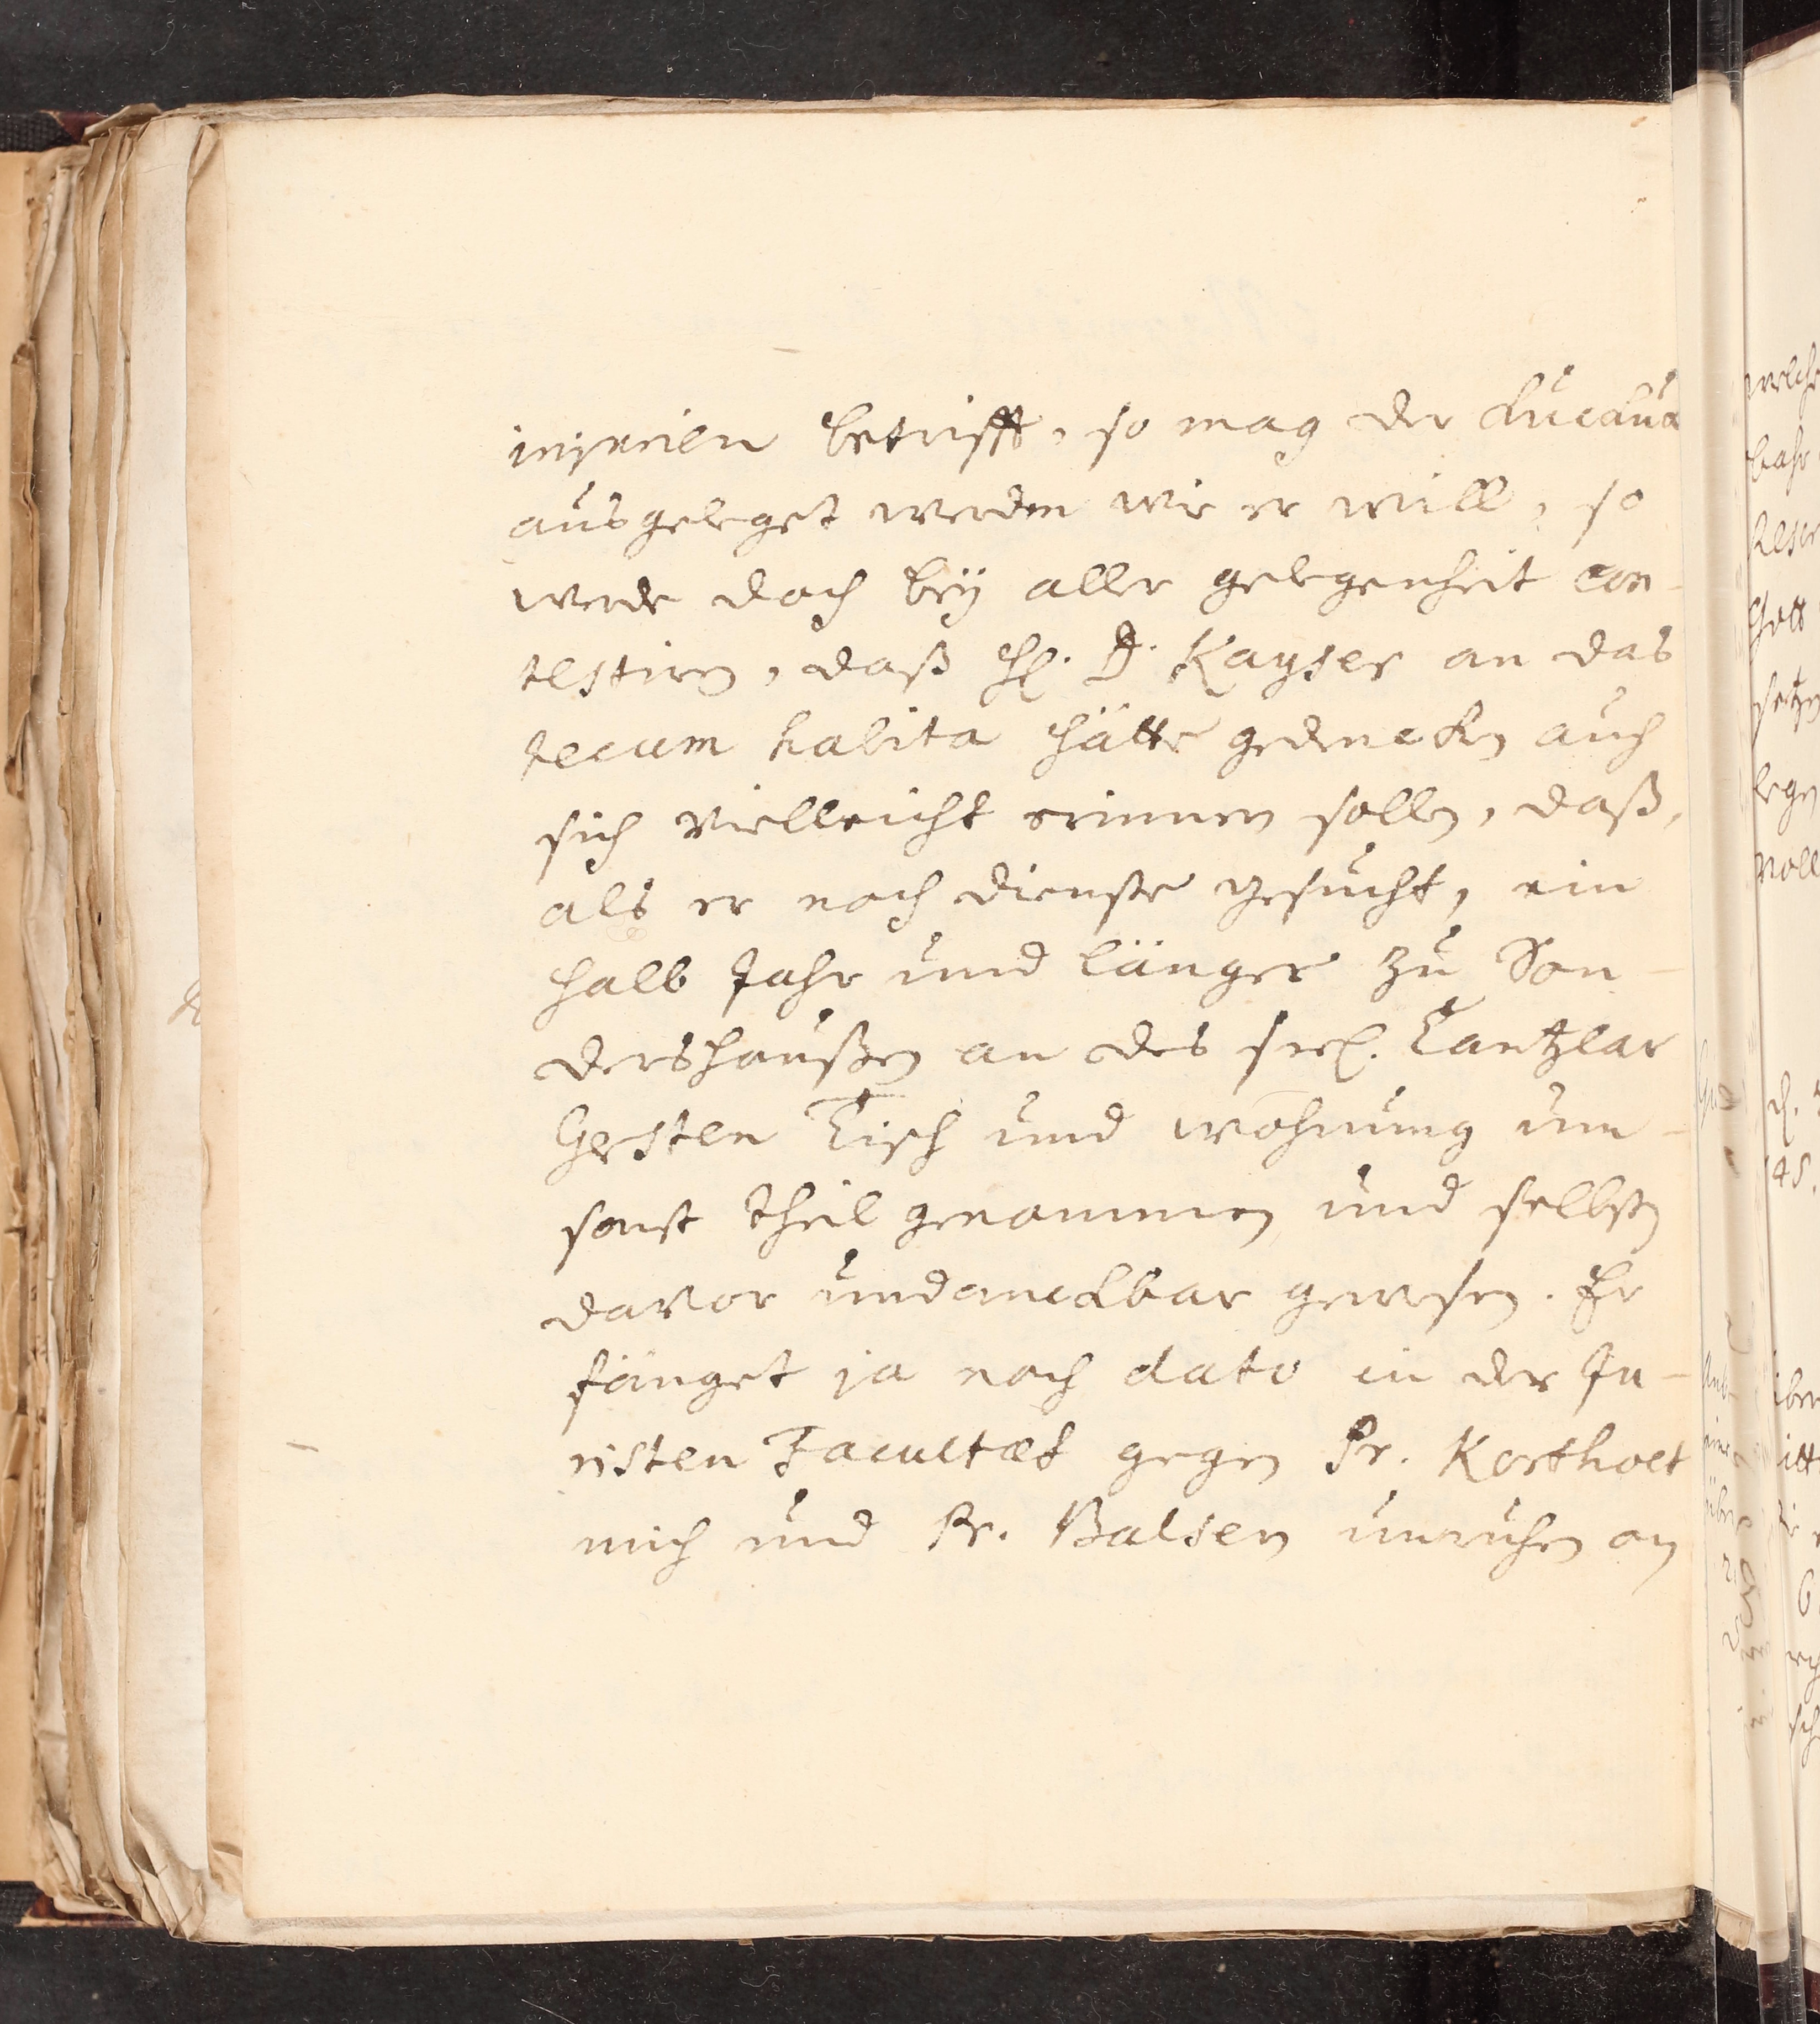 injurien betrifft, so mag der Kuckuck
ausgeleget werden wie er will, so
werde doch beÿ aller gelegenheit con-
testiren, daß H. D. Kayser an das
tecum habita hätte gedencken auch
sich vielleicht erinnern sollen, daß,
als er noch dienste gesucht, ein
halb Jahr und länger zu Son-
dershaußen an des seel. Cantzlar
Gersten Tisch und wohnung um-
sonst theil genommen und selbsten
davor undanckbar gewesen. Er
fänget ja noch dato in der Ju-
risten Facultæt gegen Pr. Kortholt
mich und Pr. Balsen unruhen an